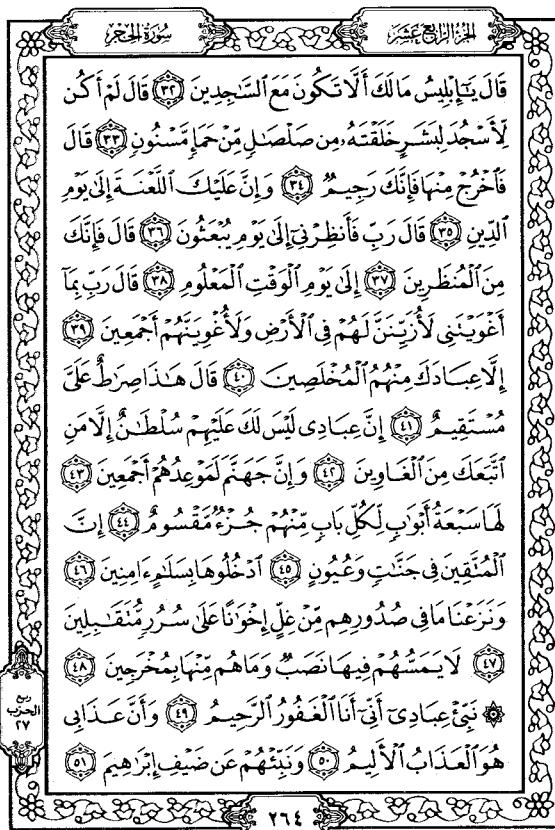 الجُزْءُ الرَّابِعَ عَشَرَ
سُورَةُ الحِجْرِ
قَالَ يَٰٓإِبْلِيسُ مَا لَكَ أَلَّا تَكُونَ مَعَ ٱلسَّٰجِدِينَ ٣٢ قَالَ لَمْ أَكُن
لِّأَسْجُدَ لِبَشَرٍ خَلَقْتَهُۥ مِن صَلْصَٰلٍ مِّنْ حَمَإٍ مَّسْنُونٍ ٣٣ قَالَ
فَٱخْرُجْ مِنْهَا فَإِنَّكَ رَجِيمٌ ٣٤ وَإِنَّ عَلَيْكَ ٱللَّعْنَةَ إِلَىٰ يَوْمِ
ٱلدِّينِ ٣٥ قَالَ رَبِّ فَأَنظِرْنِىٓ إِلَىٰ يَوْمِ يُبْعَثُونَ ٣٦ قَالَ فَإِنَّكَ
مِنَ ٱلْمُنظَرِينَ ٣٧ إِلَىٰ يَوْمِ ٱلْوَقْتِ ٱلْمَعْلُومِ ٣٨ قَالَ رَبِّ بِمَآ
أَغْوَيْتَنِى لَأُزَيِّنَنَّ لَهُمْ فِى ٱلْأَرْضِ وَلَأُغْوِيَنَّهُمْ أَجْمَعِينَ ٣٩
إِلَّا عِبَادَكَ مِنْهُمُ ٱلْمُخْلَصِينَ ٤٠ قَالَ هَٰذَا صِرَٰطٌ عَلَىَّ
مُسْتَقِيمٌ ٤١ إِنَّ عِبَادِى لَيْسَ لَكَ عَلَيْهِمْ سُلْطَٰنٌ إِلَّا مَنِ
ٱتَّبَعَكَ مِنَ ٱلْغَاوِينَ ٤٢ وَإِنَّ جَهَنَّمَ لَمَوْعِدُهُمْ أَجْمَعِينَ ٤٣
لَهَا سَبْعَةُ أَبْوَٰبٍ لِّكُلِّ بَابٍ مِّنْهُمْ جُزْءٌ مَّقْسُومٌ ٤٤ إِنَّ
ٱلْمُتَّقِينَ فِى جَنَّٰتٍ وَعُيُونٍ ٤٥ ٱدْخُلُوهَا بِسَلَٰمٍ ءَامِنِينَ ٤٦
وَنَزَعْنَا مَا فِى صُدُورِهِم مِّنْ غِلٍّ إِخْوَٰنًا عَلَىٰ سُرُرٍ مُّتَقَٰبِلِينَ
٤٧ لَا يَمَسُّهُمْ فِيهَا نَصَبٌ وَمَا هُم مِّنْهَا بِمُخْرَجِينَ ٤٨
۞ نَبِّئْ عِبَادِىٓ أَنِّىٓ أَنَا ٱلْغَفُورُ ٱلرَّحِيمُ ٤٩ وَأَنَّ عَذَابِى
هُوَ ٱلْعَذَابُ ٱلْأَلِيمُ ٥٠ وَنَبِّئْهُمْ عَن ضَيْفِ إِبْرَٰهِيمَ ٥١
ربع
الحزب
٢٧
٢٦٤